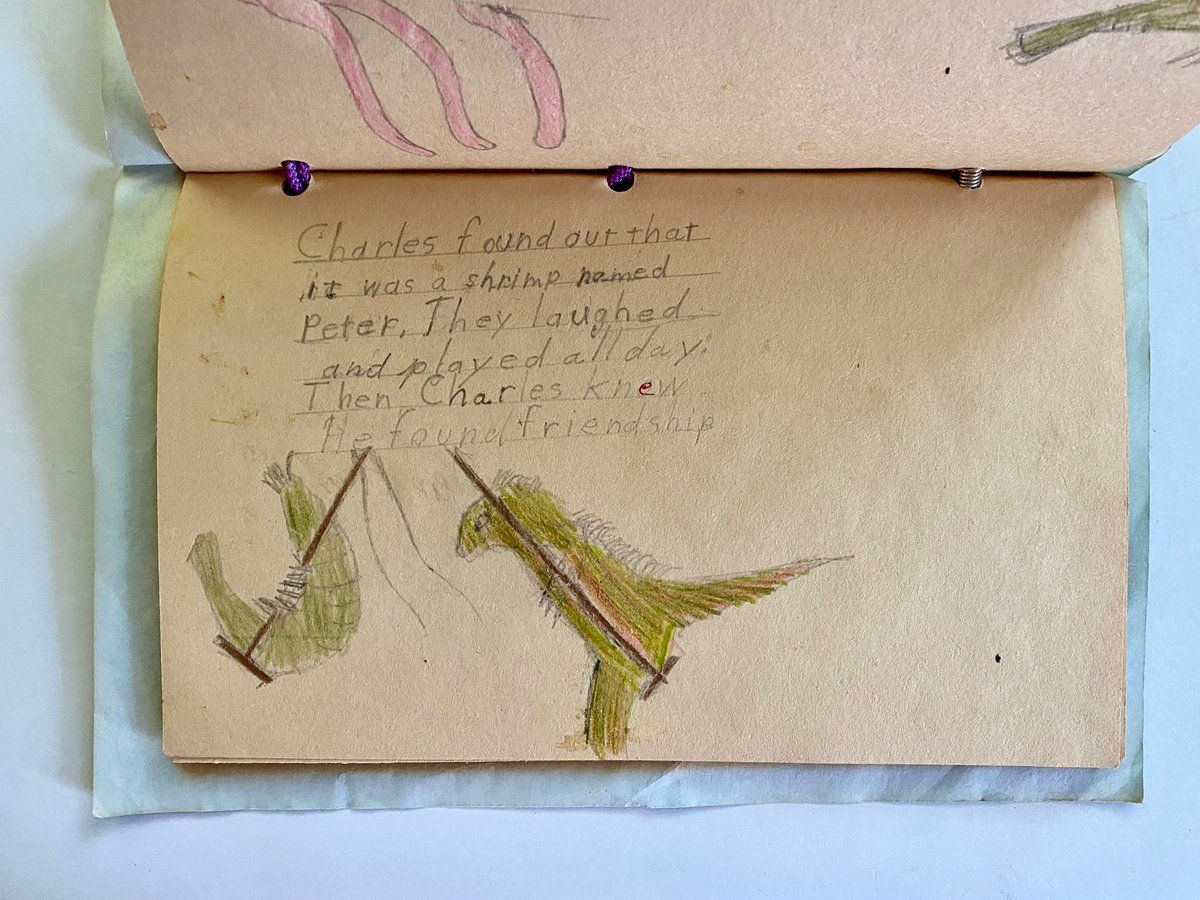 Charles found out that
it was a shrimp named
Peter. They laughed
and played all day.
Then Charles knew
He found friendship